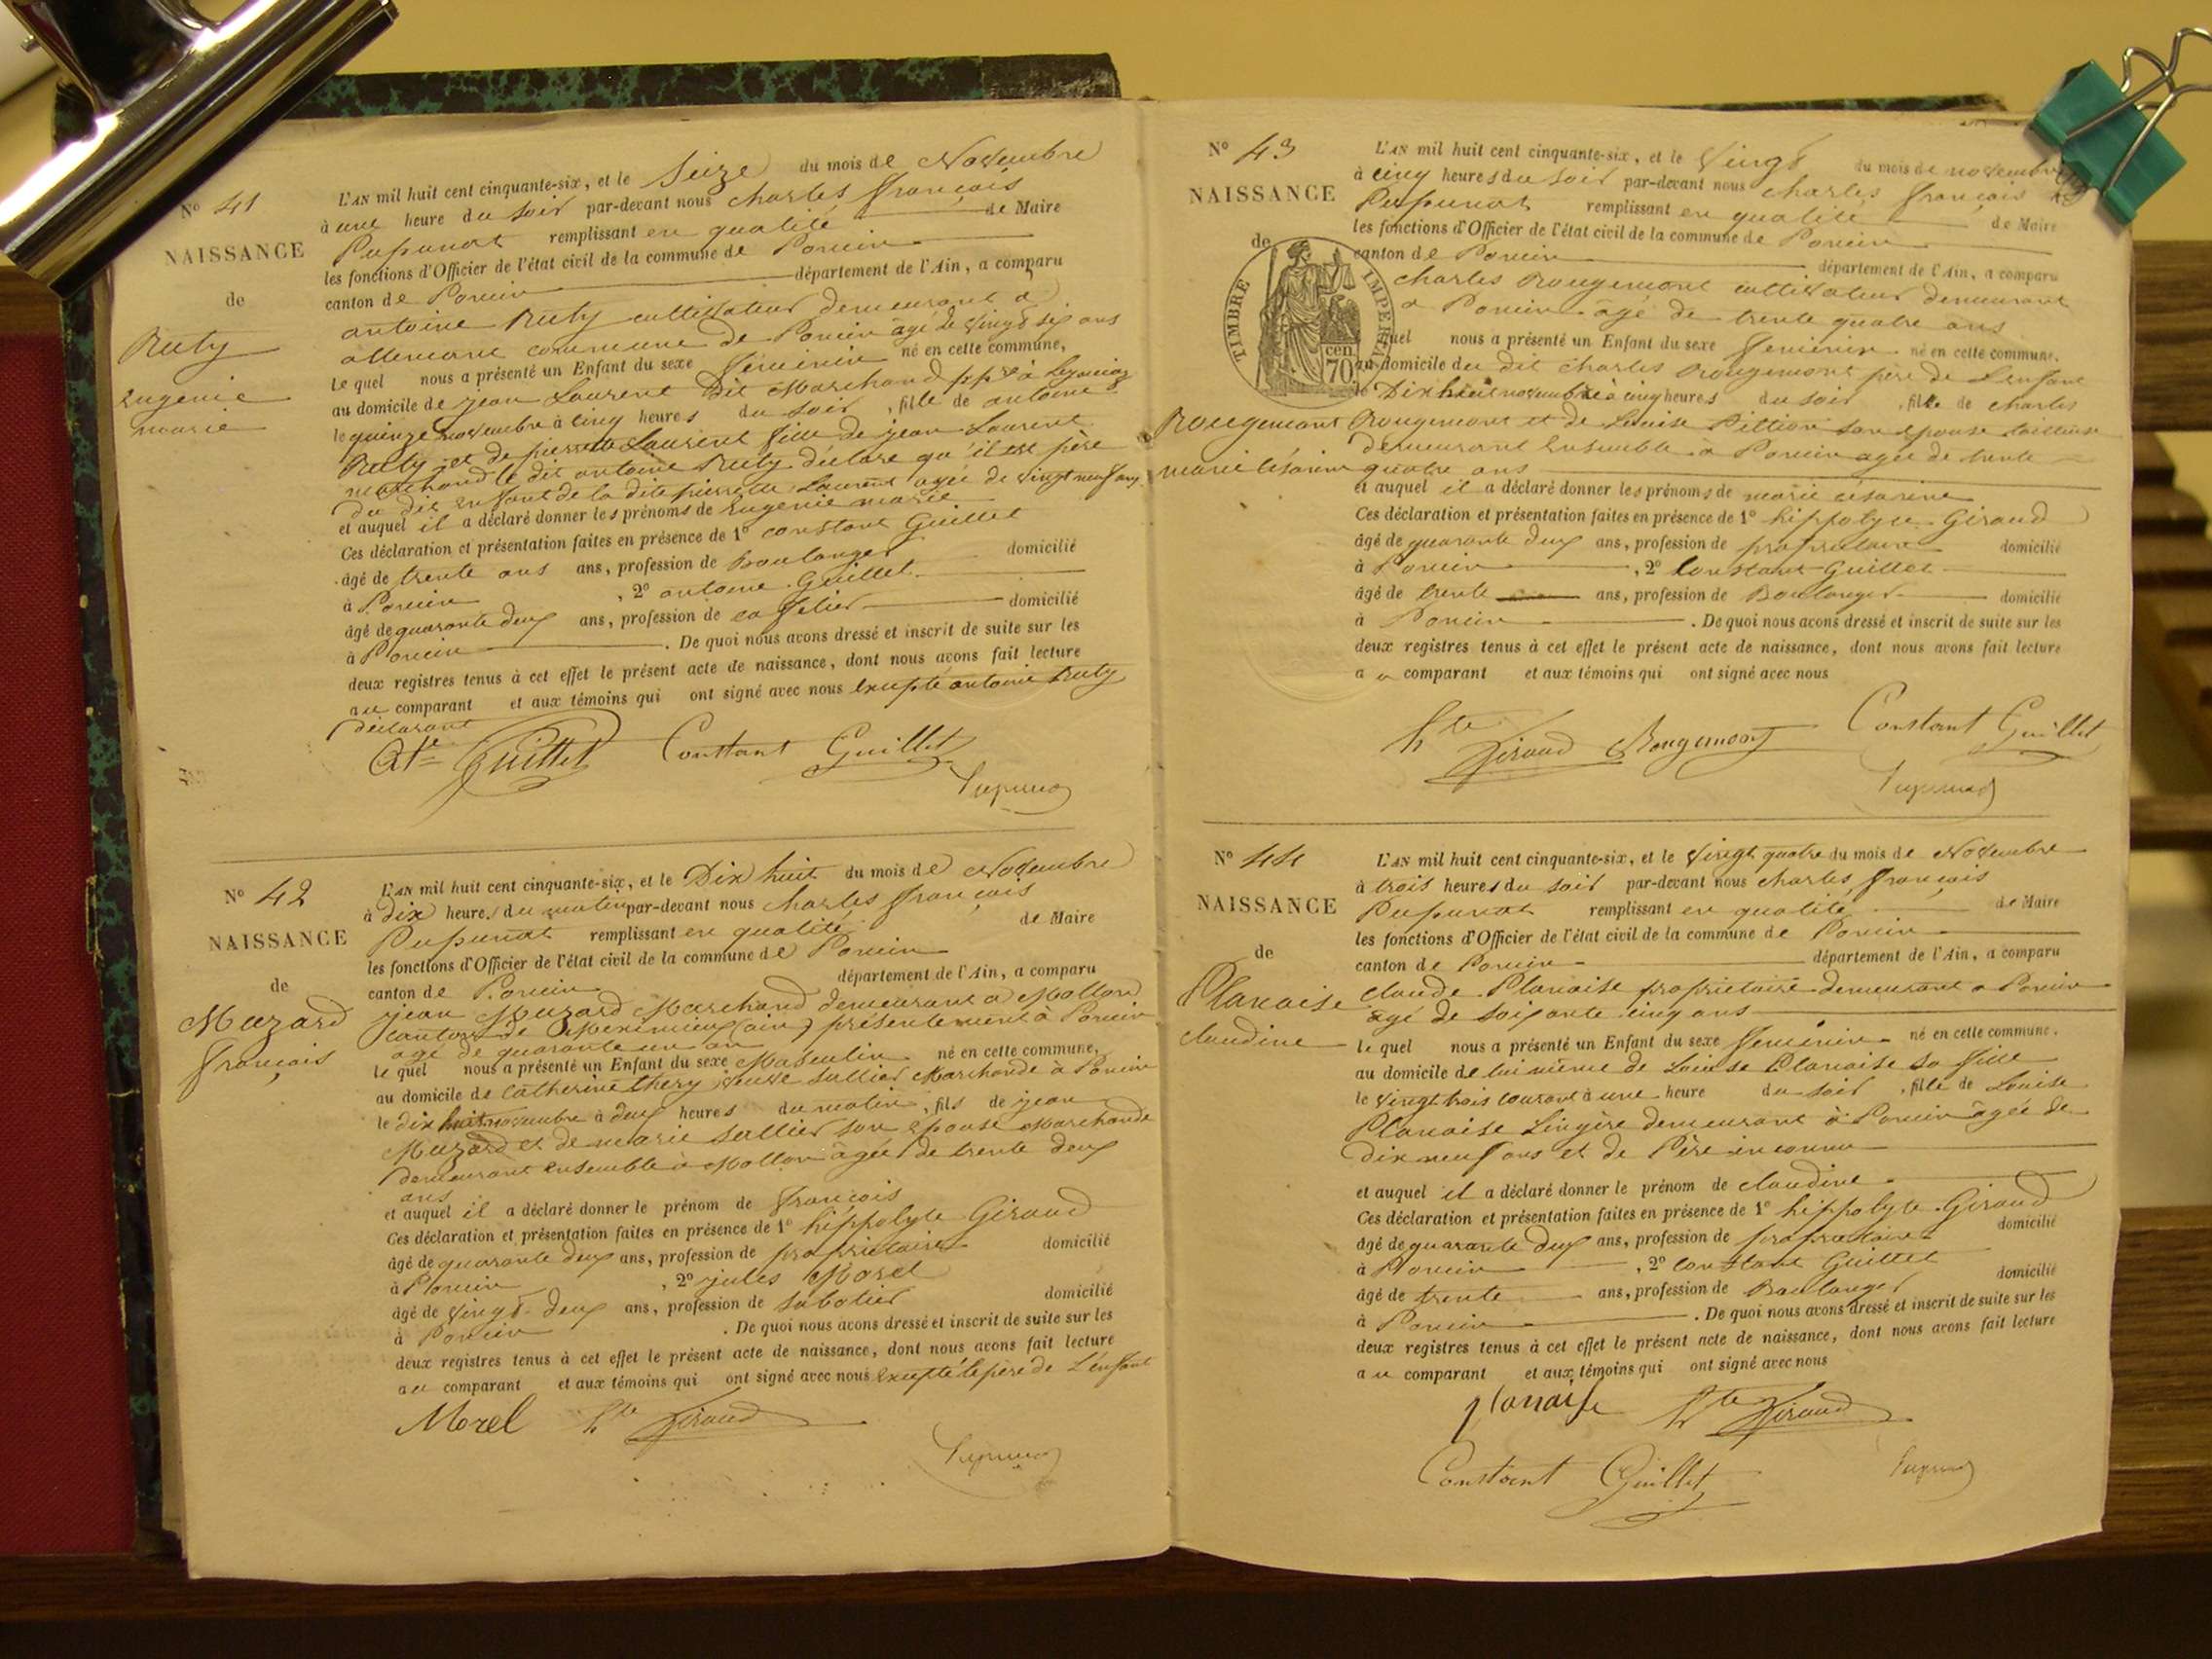 N° 41
NAISSANCE
de
Ruty
Eugenie
marie
L'AN mil huit cent cinquante-six, et le Seize du mois de Novembre
à une heure du soir par-devant nous charles françois
Pupunat remplissant en qualité de Maire
les fonctions d'Officier de l'état civil de la commune de Poncin
canton de Poncin département de l'Ain, a comparu
antoine Ruty cultivateur demeurant à
allement commune de Poncin âgé de vingt six ans
Le quel nous a présenté un Enfant du sexe féminin né en cette commune,
au domicile de jean Laurent dit Marchand pp.re à
le quinze novembre à cinq heures du soir, fille de antoine
Ruty et de pierrette Laurent fille de jean Laurent
marchand le dit antoine Ruty déclare qu'il est père
du dit enfant de la dite pierrette Laurent agée de vingt neuf ans
et auquel il a déclaré donner les prénoms de Eugenie marie
Ces déclaration et présentation faites en présence de 1° constant Guillet
âgé de trente ans ans, profession de Boulanger domicilié
à Poncin, 2° antoine Guillet
âgé de quarante deux ans, profession de cafetier domicilié
à Poncin. De quoi nous avons dressé et inscrit de suite sur les
deux registres tenus à cet effet le présent acte de naissance, dont nous avons fait lecture
au comparant et aux témoins qui ont signé avec nous excepté antoine Ruty
déclarant
Guillet Constant Guillet
Pupunat
N° 42
NAISSANCE
de
Mazard
françois
L'AN mil huit cent cinquante-six, et le Dix huit du mois de Novembre
à dix heures du matin par-devant nous charles françois
Pupunat remplissant en qualité de Maire
les fonctions d'Officier de l'état civil de la commune de Poncin
canton de Poncin département de l'Ain, a comparu
jean Mazard Marchand demeurant à Mollon
canton de Meximieux (ain) présentement à Poncin
agé de quarante un an
le quel nous a présenté un Enfant du sexe Masculin né en cette commune,
au domicile de Catherine thery veuve Sallier Marchande à Poncin
le dix huit novembre à deux heures du matin, fils de jean
Mazard et de marie Sallier son épouse Marchande
demeurant ensemble à Mollon âgée de trente deux
ans
et auquel il a déclaré donner le prénom de françois
Ces déclaration et présentation faites en présence de 1° hippolyte Giraud
âgé de quarante deux ans, profession de propriétaire domicilié
à Poncin, 2° jules Morel
âgé de vingt-deux ans, profession de sabotier domicilié
à Poncin. De quoi nous avons dressé et inscrit de suite sur les
deux registres tenus à cet effet le présent acte de naissance, dont nous avons fait lecture
au comparant et aux témoins qui ont signé avec nous excepté le père de L'enfant
Morel hte Giraud
Pupunat
N° 43
NAISSANCE
de
TIMBRE IMPERIAL
70 cen
Rougemont
marie césarine
L'AN mil huit cent cinquante-six, et le vingt du mois de novembre
à cinq heures du soir par-devant nous charles françois
Pupunat remplissant en qualité de Maire
les fonctions d'Officier de l'état civil de la commune de Poncin
canton de Poncin département de l'Ain, a comparu
charles Rougemont cultivateur demeurant
a Poncin âgé de trente quatre ans
quel nous a présenté un Enfant du sexe féminin né en cette commune.
au domicile du dit charles Rougemont père de L'enfant
le Dix huit novembre à cinq heures du soir, fille de charles
Rougemont et de Louise Pittion son épouse tailleuse
demeurant ensemble à Poncin agée de trente
quatre ans
et auquel il a déclaré donner les prénoms de marie césarine
Ces déclaration et présentation faites en présence de 1° hippolyte Giraud
âgé de quarante deux ans, profession de propriétaire domicilié
à Poncin, 2° Constant Guillet
âgé de trente ans, profession de Boulanger domicilié
à Poncin. De quoi nous avons dressé et inscrit de suite sur les
deux registres tenus à cet effet le présent acte de naissance, dont nous avons fait lecture
au comparant et aux témoins qui ont signé avec nous
hte Giraud Rougemont Constant Guillet
Pupunat
N° 44
NAISSANCE
de
Planaise
claudine
L'AN mil huit cent cinquante-six, et le vingt quatre du mois de Novembre
à trois heures du soir par-devant nous charles françois
Pupunat remplissant en qualité de Maire
les fonctions d'Officier de l'état civil de la commune de Poncin
canton de Poncin département de l'Ain, a comparu
claude Planaise propriétaire demeurant a Poncin
agé de soixante cinq ans
le quel nous a présenté un Enfant du sexe féminin né en cette commune.
au domicile de lui même de Louise Planaise sa fille
le vingt trois courant à une heure du soir, fille de Louise
Planaise Lingère demeurant à Poncin âgée de
dix neuf ans et de Père inconnu
et auquel il a déclaré donner le prénom de claudine
Ces déclaration et présentation faites en présence de 1° hippolyte Giraud
âgé de quarante deux ans, profession de propriétaire domicilié
à Poncin, 2° constant Guillet
âgé de trente ans, profession de Boulanger domicilié
à Poncin. De quoi nous avons dressé et inscrit de suite sur les
deux registres tenus à cet effet le présent acte de naissance, dont nous avons fait lecture
au comparant et aux témoins qui ont signé avec nous
planaise hte Giraud
Constant Guillet Pupunat